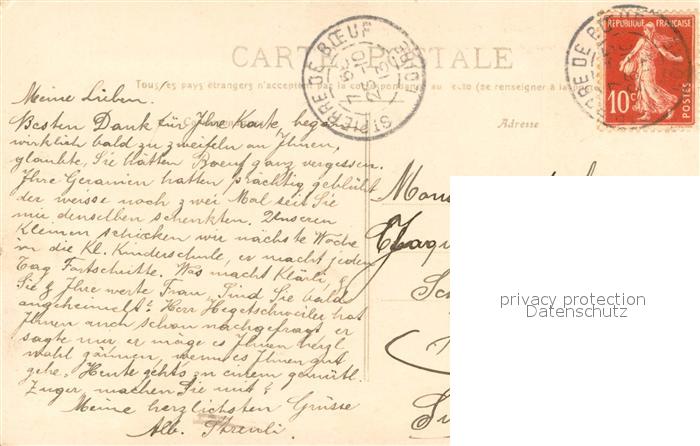 CARTE POSTALE
Tous les pays étrangers n'acceptent pas la correspondance au recto (se renseigner à la
Adresse
RÉPUBLIQUE FRANÇAISE
10 c
POSTES
ST PIERRE DE BŒUF
LOIRE
Meine Lieben!
Besten Dank für Ihre Karte, begann
wirklich bald zu zweifeln an Ihnen,
glaubte, Sie hätten Boeuf ganz vergessen.
Ihre Geranien hatten prächtig geblüht
der weisse noch zwei Mal seit Sie
mir denselben schenkten. Unseren
Kleinen schicken wir nächste Woche
in die Kl. Kinderschule, er macht jeden
Tag Fortschritte. Was macht Klärli, &
Sie & Ihre werte Frau, Sind Sie bald
angeheimelt? Herr Hegetschweiler hat
Ihnen auch schon nachgefragt, er
sagte nur er möge es Ihnen
wohl gönnen, wenn es Ihnen gut
gehe. Heute gehts zu einem gemütl.
Zuger, machen Sie mit?
Meine herzlichsten Grüsse
Alb. Streuli.
Mons
Jaqu
privacy protection
Datenschutz